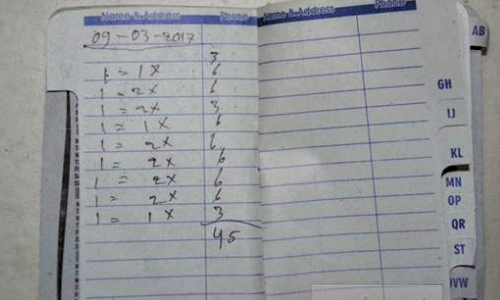 Name & Address Phone
09-03-2017
3
1 = 1x 6
1 = 2x 6
1 = 2x 3
1 = 1x 6
1 = 2x 6
1 = 2x 6
1 = 2x 6
1 = 2x 6
1 = 1x 3
45
Name & Address Phone
AB
GH
IJ
KL
MN
OP
QR
ST